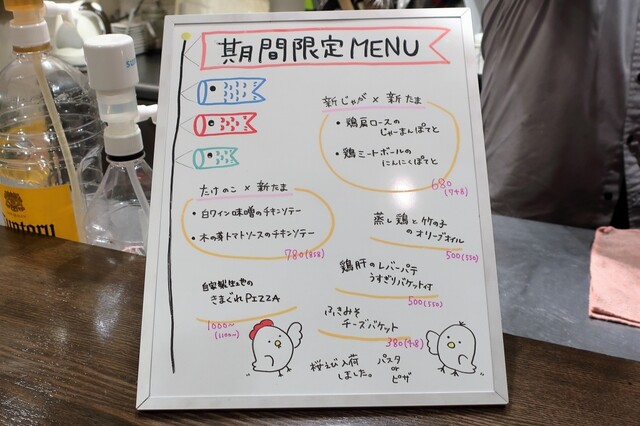 期間限定MENU
新じゃが × 新たま
・鶏肩ロースの
じゃーまんぽてと
・鶏ミートボールの
にんにくぽてと
680
(748)
たけのこ × 新たま
・白ワイン味噌のチキンソテー
・木の芽トマトソースのチキンソテー
780(858)
蒸し鶏と竹の子
のオリーブオイル
500(550)
鶏肝のレバーパテ
うすぎりバケット付
500(550)
自家製生地の
きまぐれPIZZA
1000〜
(1100〜)
ふきみそ
チーズバケット
380(418)
桜えび入荷
しました。
パスタ
or
ピザ
Suntory